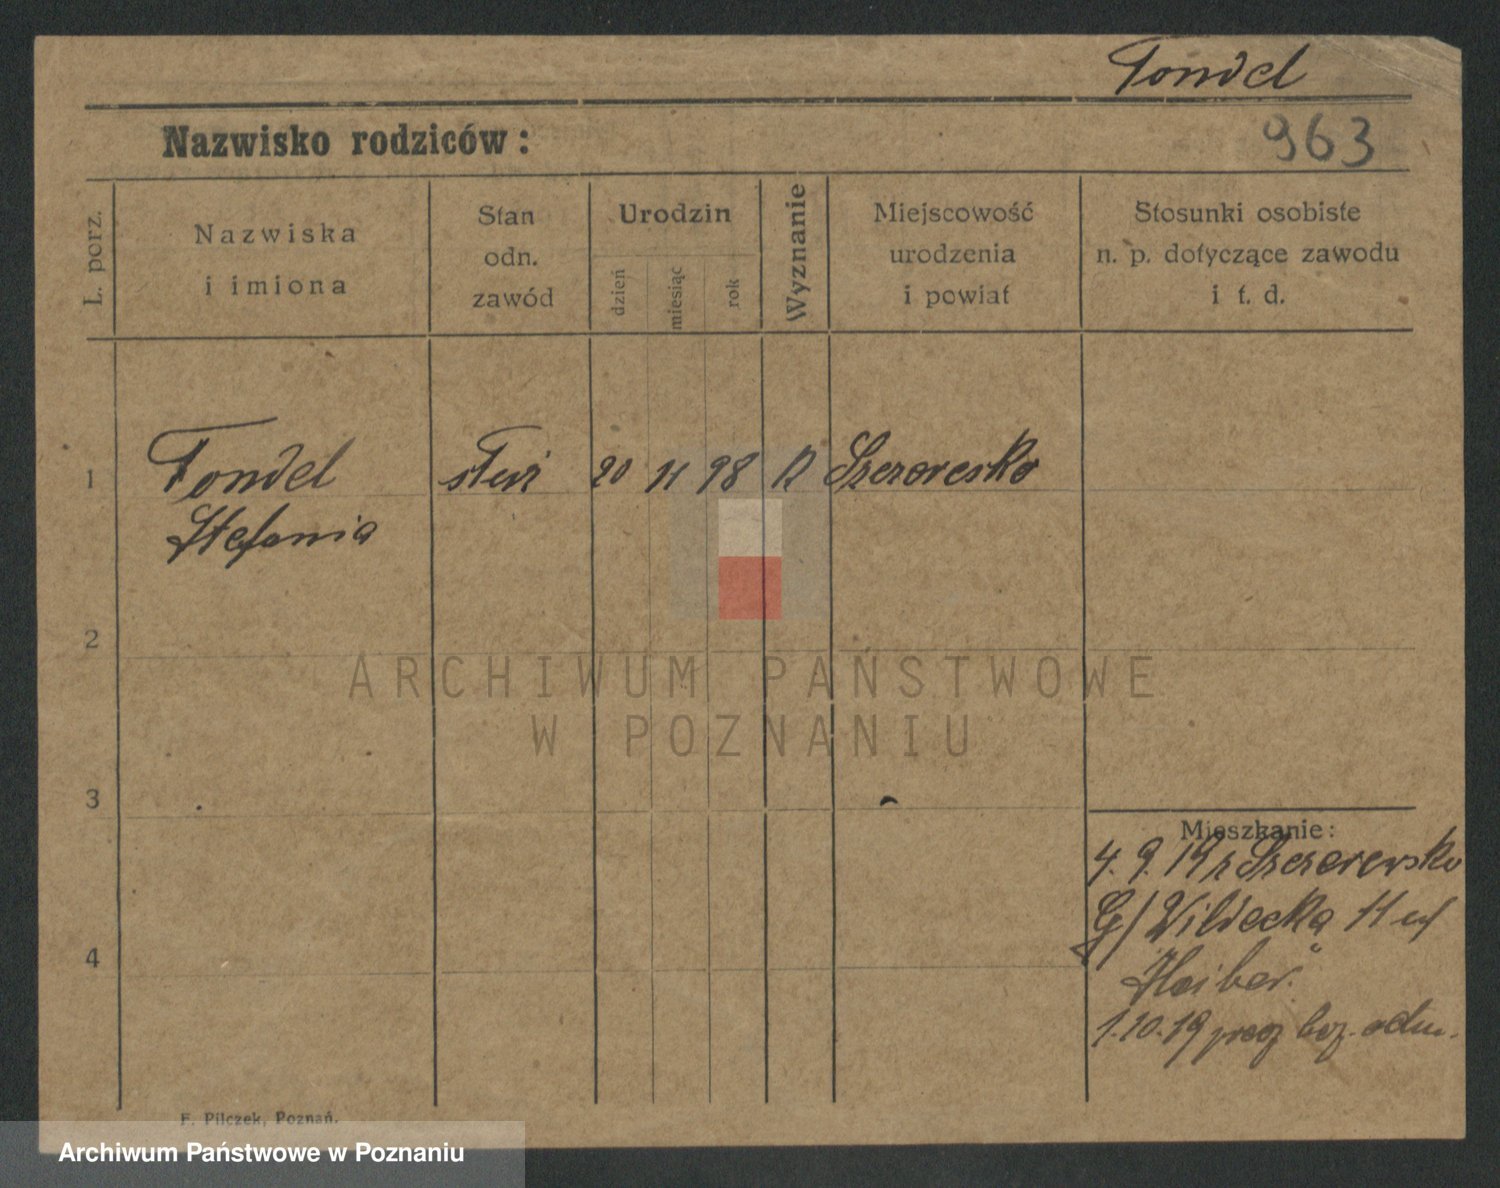 Fondel
Nazwisko rodziców:
963
L. porz.
Nazwiska
i imiona
Stan
odn.
zawód
Urodzin
dzień
miesiąc
rok
Wyznanie
Miejscowość
urodzenia
i powiat
Stosunki osobiste
n. p. dotyczące zawodu
i t. d.
1
Fondel
Stefania
20 11 98
2
ARCHIWUM PAŃSTWOWE
W POZNANIU
3
Mieszkanie:
4. 9. 19 z
G/ Wildecka 11
4
1.10.19
F. Pilczek, Poznań.
Archiwum Państwowe w Poznaniu